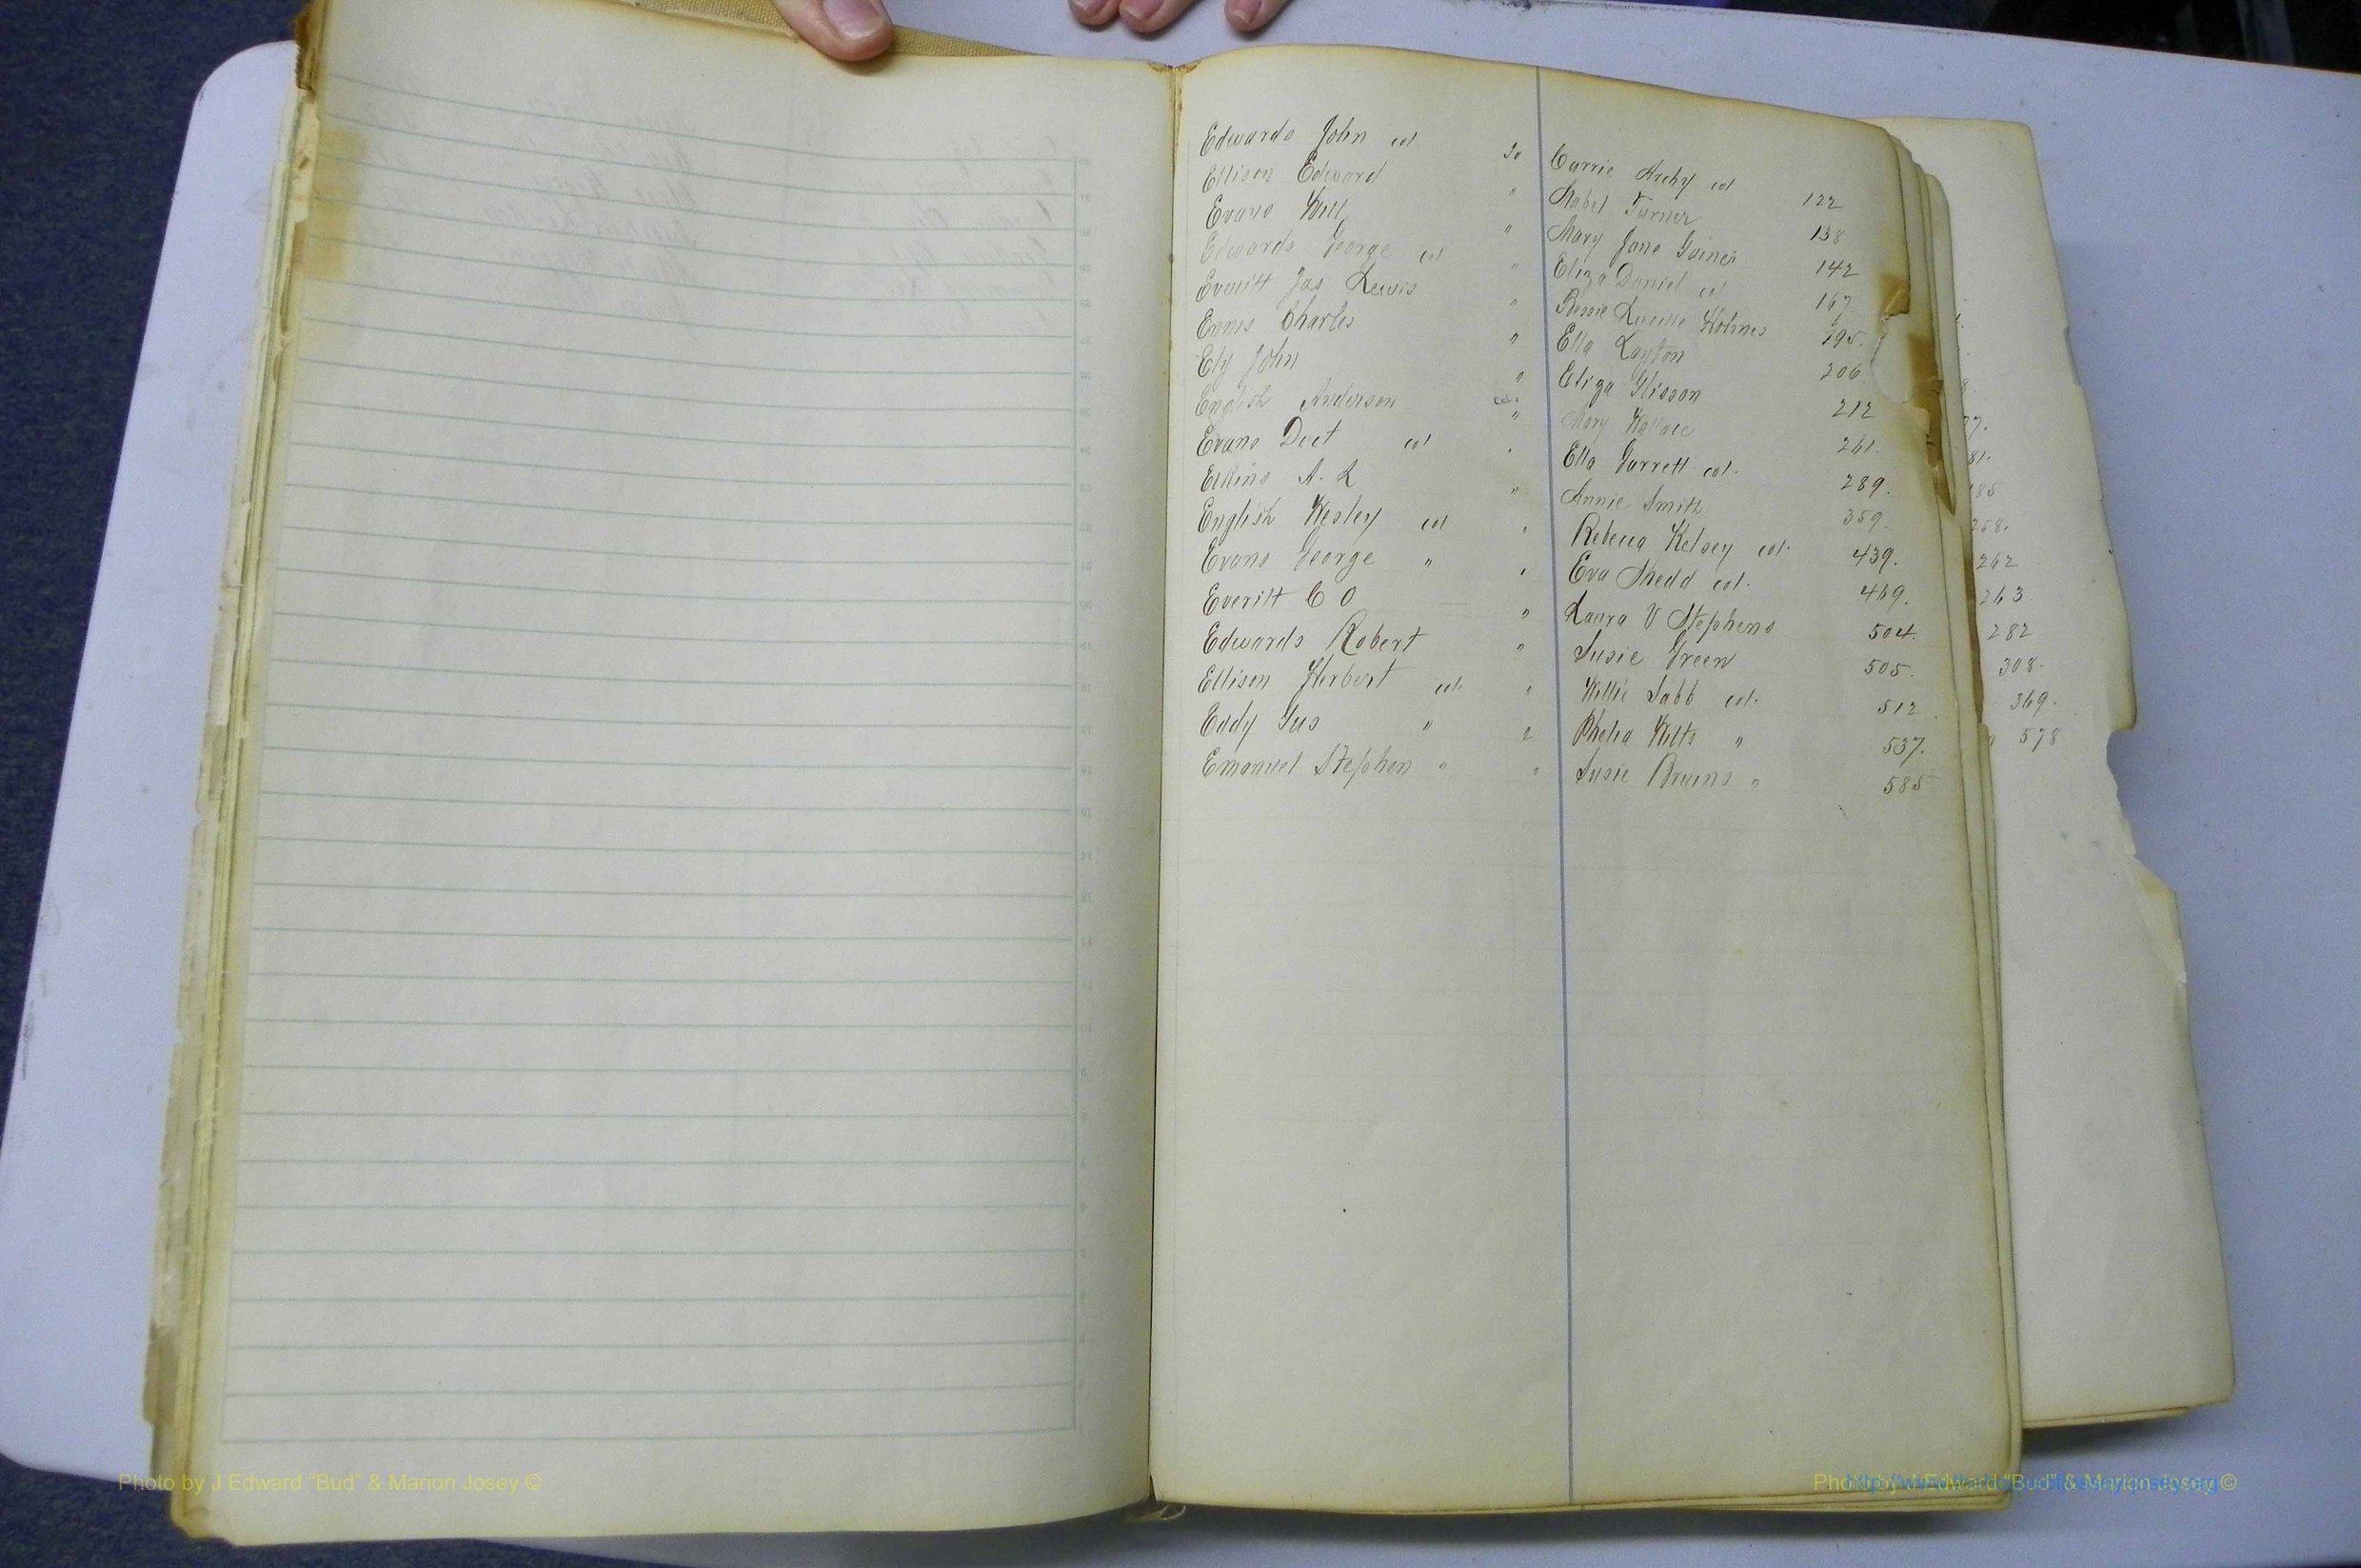 Edwards John col to Carrie Archy col 122
Ellison Edward " Mabel Turner 138
Evans Will " Mary Jane Gainer 142
Edwards George col " Eliza Daniel col 167.
Everitt Jas Lewis " Bessie Lucille Holmes 195.
Ennis Charles " Ella Layton 206.
Ely John " Eliza Glisson 212
English Anderson col. " Mary Wallace 261.
Evans Duet col . Ella Garrett col. 289.
Elkins A. L " Annie Smith 359.
English Wesley col " Rebecca Kelsey col. 439.
Evans George " " Eva Shedd col. 469.
Everitt C O " Laura V Stephens 504.
Edwards Robert " Susie Green 505.
Ellison Herbert col. " Willie Sabb col. 512.
Eddy Gus " " Phelia Wilts " 537.
Emanuel Stephen " " Susie Bruins " 585
81.
185
258.
262
263
282
308.
369.
578
Photo by J Edward “Bud” & Marion Josey ©
Photo by J Edward “Bud” & Marion Josey ©